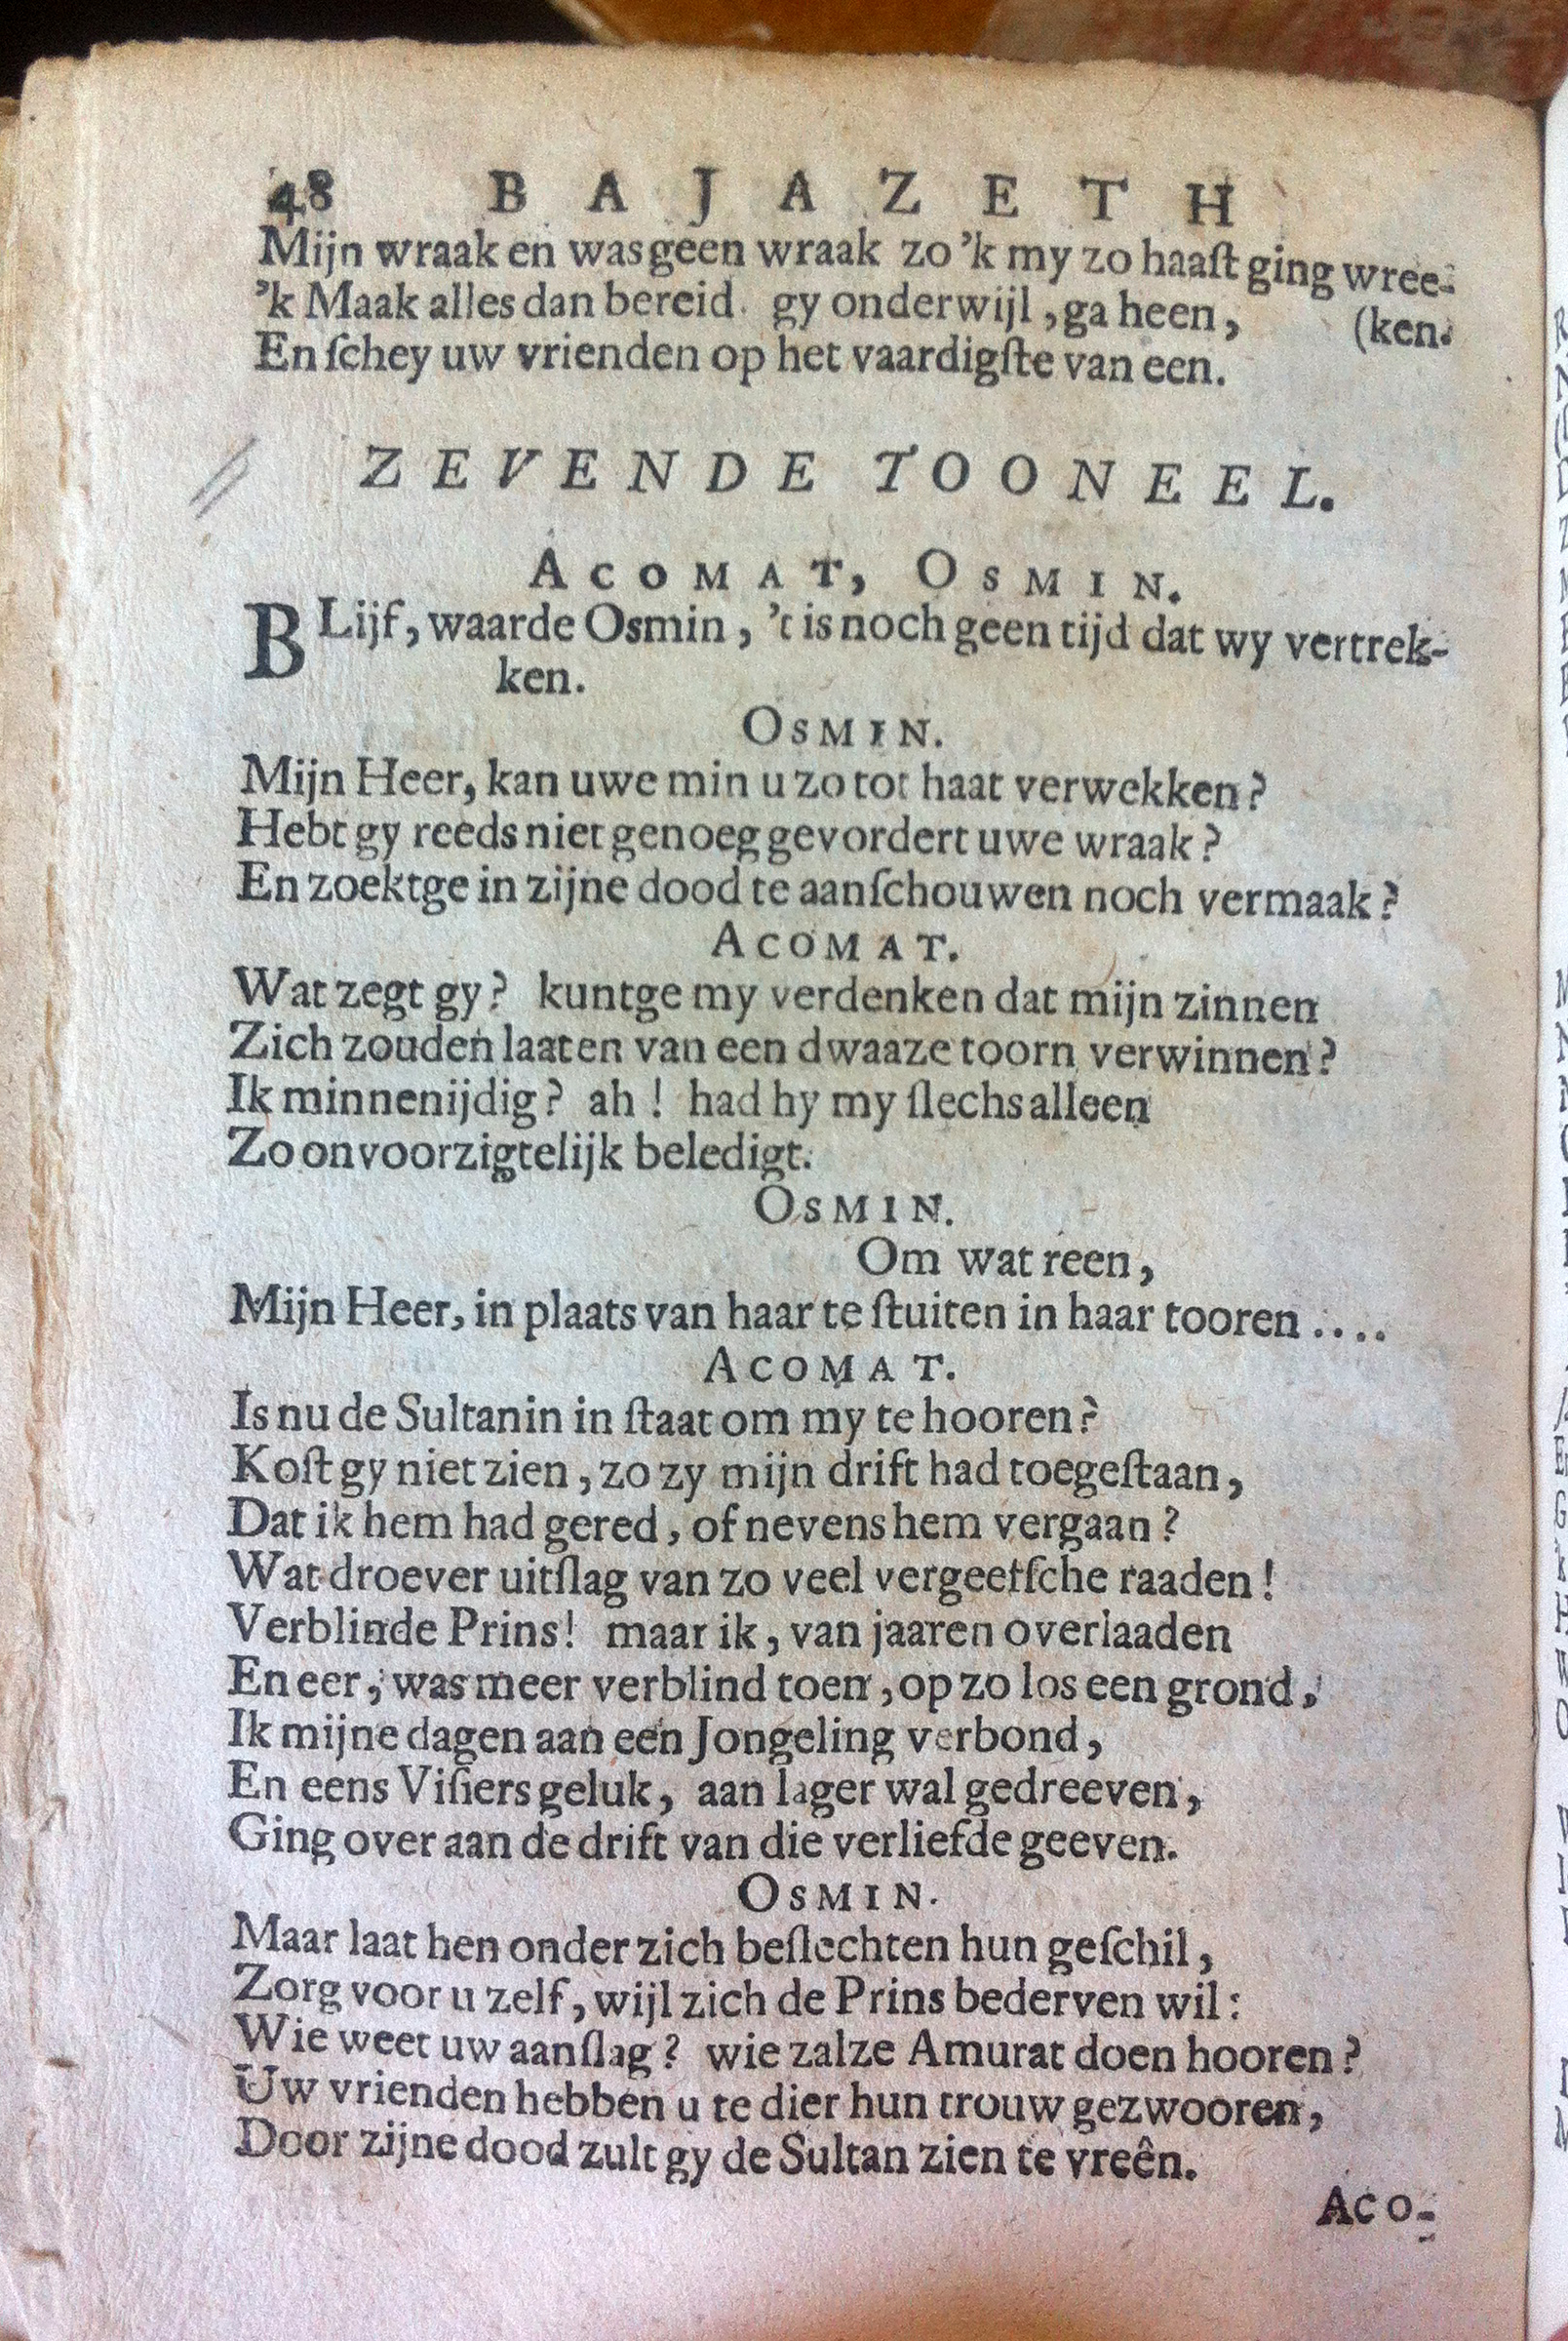 48 BAJAZETH
Mijn wraak en was geen wraak zo 'k my zo haaſt ging wree-
'k Maak alles dan bereid. gy onderwijl, ga heen, (ken.
En ſchey uw vrienden op het vaardigſte van een.
ZEVENDE TOONEEL.
ACOMAT, OSMIN.
BLijf, waarde Osmin, 't is noch geen tijd dat wy vertrek-
ken.
OSMIN.
Mijn Heer, kan uwe min u zo tot haat verwekken?
Hebt gy reeds niet genoeg gevordert uwe wraak?
En zoektge in zijne dood te aanſchouwen noch vermaak?
ACOMAT.
Wat zegt gy? kuntge my verdenken dat mijn zinnen
Zich zouden laaten van een dwaaze toorn verwinnen?
Ik minnenijdig? ah! had hy my ſlechs alleen
Zo onvoorzigtelijk beledigt.
OSMIN.
Om wat reen,
Mijn Heer, in plaats van haar te ſtuiten in haar tooren ....
ACOMAT.
Is nu de Sultanin in ſtaat om my te hooren?
Koſt gy niet zien, zo zy mijn drift had toegeſtaan,
Dat ik hem had gered, of nevens hem vergaan?
Wat droever uitſlag van zo veel vergeefſche raaden!
Verblinde Prins! maar ik, van jaaren overlaaden
En eer, was meer verblind toen, op zo los een grond,
Ik mijne dagen aan een Jongeling verbond,
En eens Viſiers geluk, aan lager wal gedreeven,
Ging over aan de drift van die verliefde geeven.
OSMIN.
Maar laat hen onder zich beſlechten hun geſchil,
Zorg voor u zelf, wijl zich de Prins bederven wil:
Wie weet uw aanſlag? wie zalze Amurat doen hooren?
Uw vrienden hebben u te dier hun trouw gezwooren,
Door zijne dood zult gy de Sultan zien te vreên.
ACO-